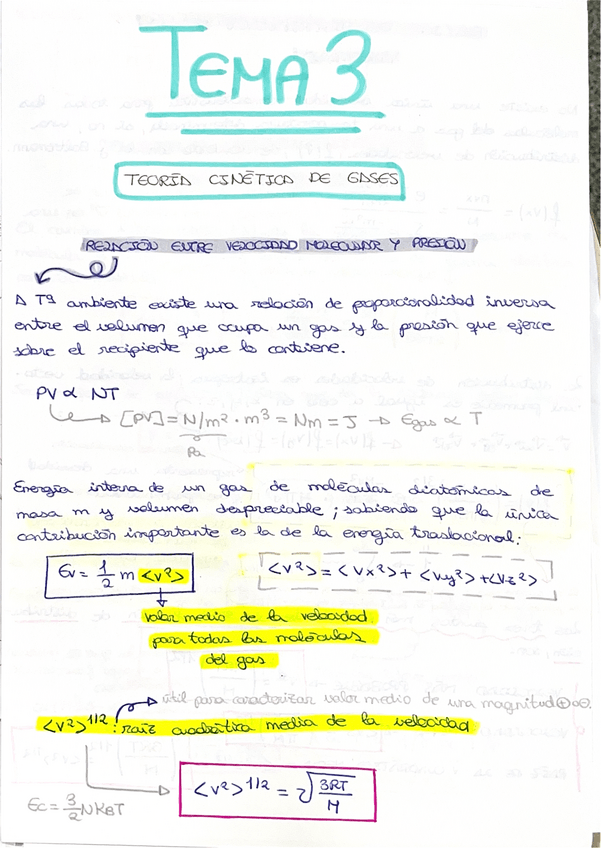 TEMA 3
TEORÍA CINÉTICA DE GASES
RELACIÓN ENTRE VELOCIDAD MOLECULAR Y PRESIÓN
A Tª ambiente existe una relación de proporcionalidad inversa
entre el volumen que ocupa un gas y la presión que ejerce
sobre el recipiente que lo contiene.
PV ∝ NT
[PV] = N/m² · m³ = Nm = J → Egas ∝ T
Pa
Energía interna de un gas de moléculas diatómicas de
masa m y volumen despreciable; sabiendo que la única
contribución importante es la de la energía traslacional:
Ev = 1/2 m <v²>
<v²> = <vx²> + <vy²> + <vz²>
valor medio de la velocidad
para todas las moléculas
del gas
útil para caracterizar valor medio de una magnitud ⊕ o ⊖.
<v²>^1/2 : raíz cuadrática media de la velocidad
<v²>^1/2 = √(3RT/M)
Ec = 3/2 NKBT